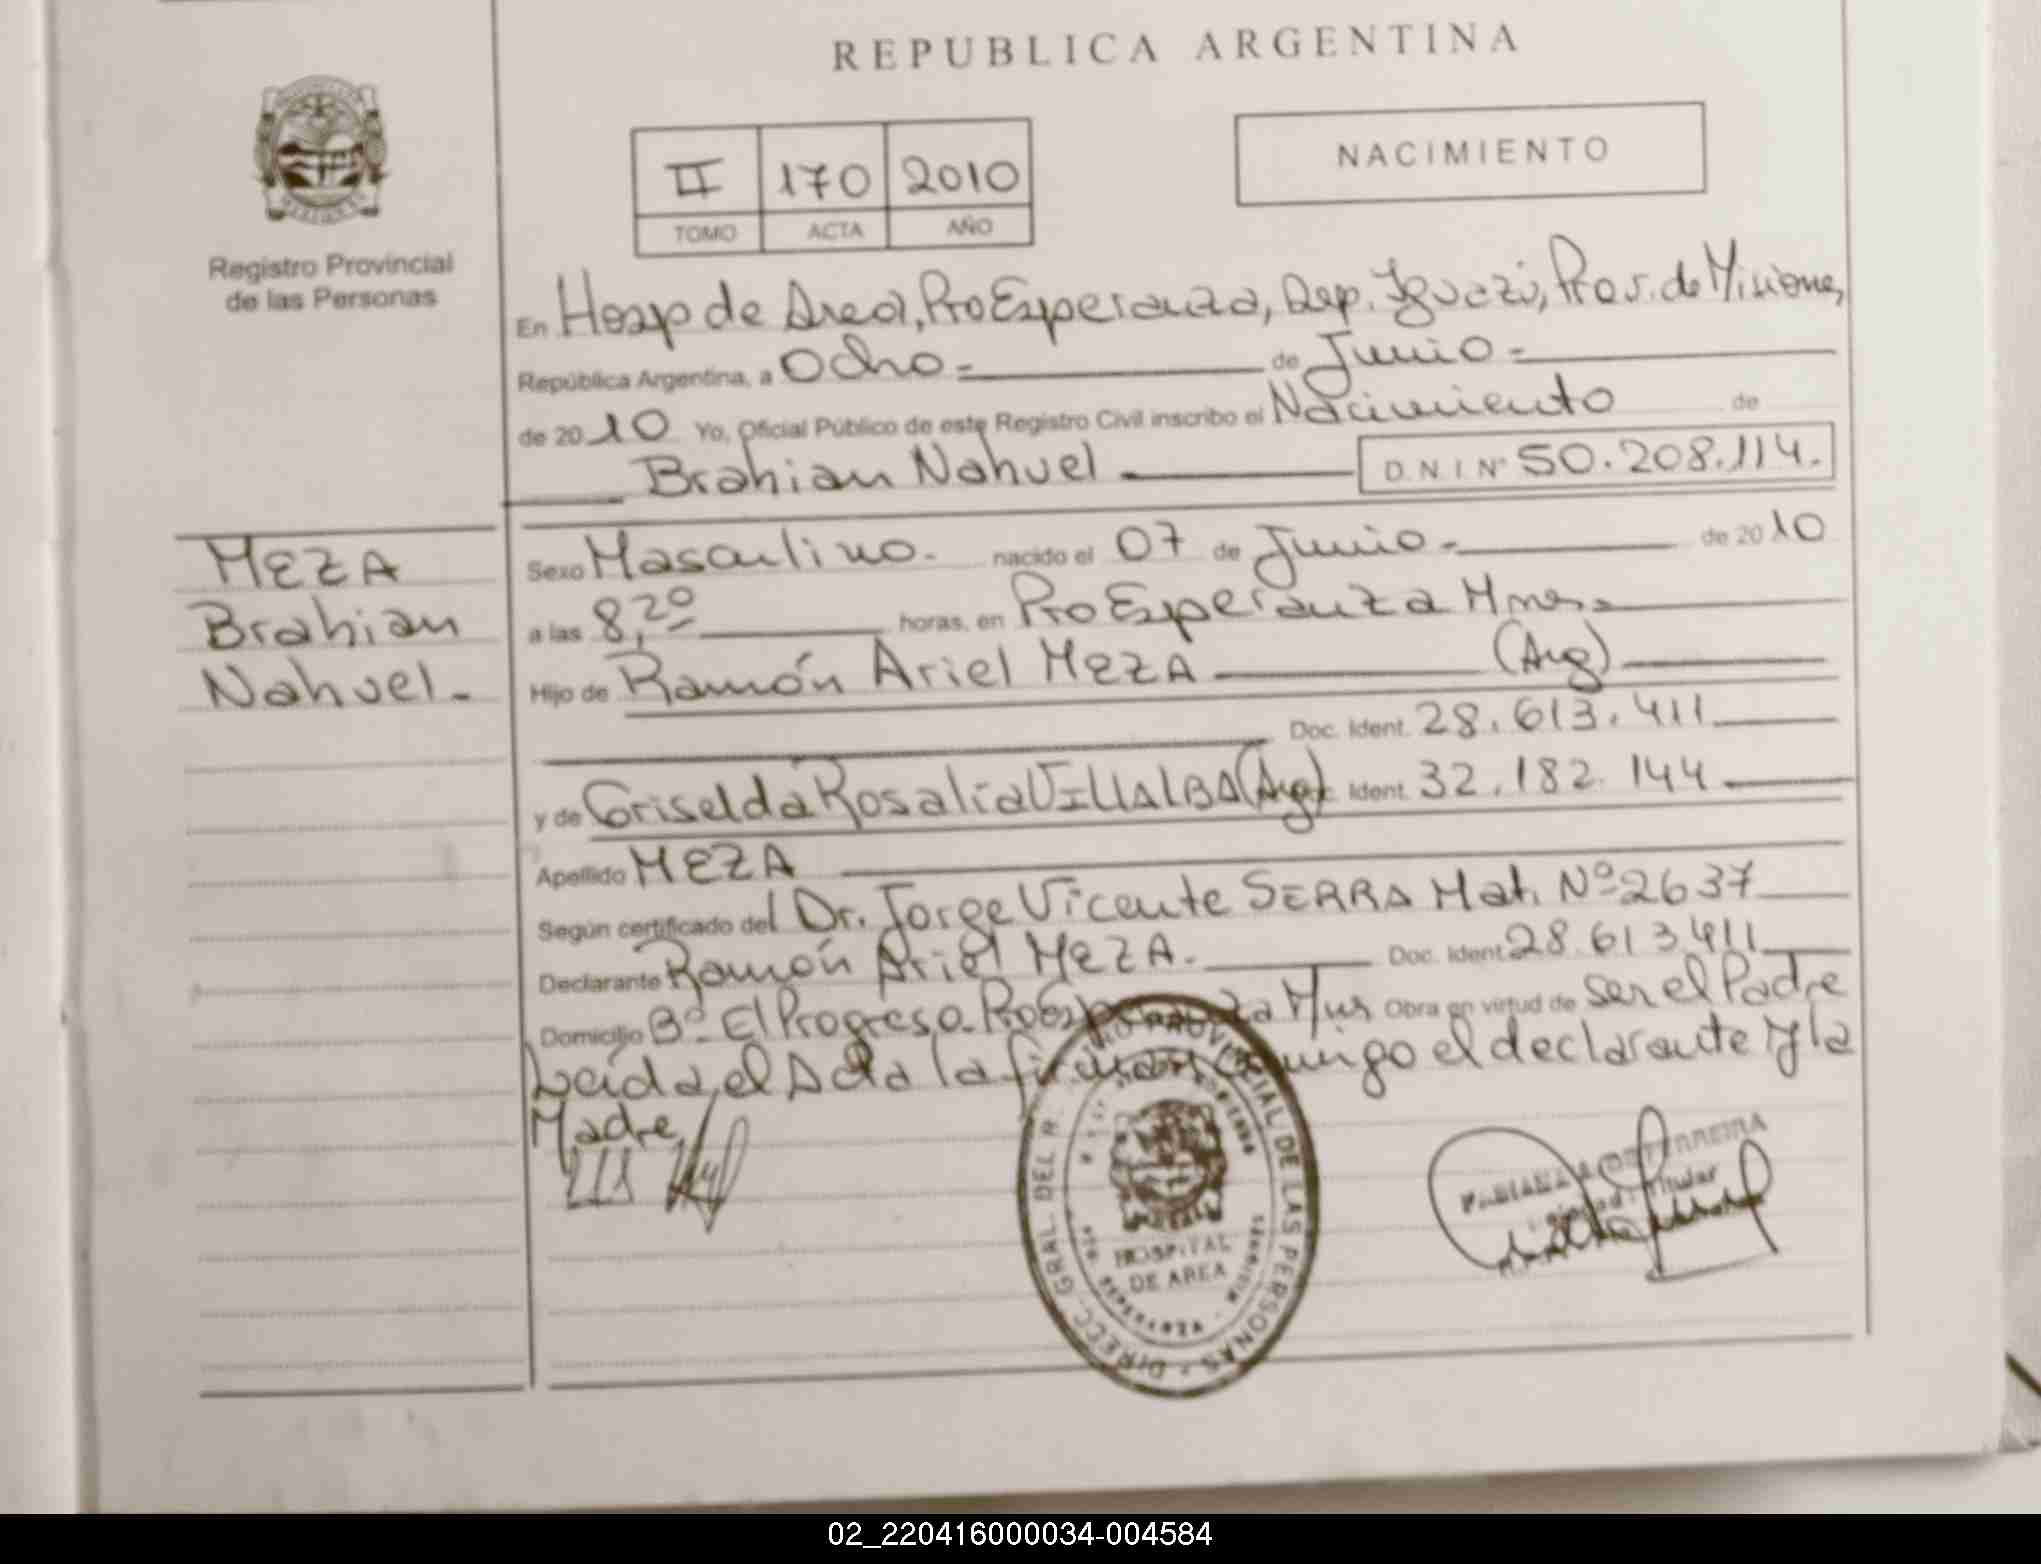 REPUBLICA ARGENTINA
II 170 2010
TOMO ACTA AÑO
NACIMIENTO
Registro Provincial
de las Personas
En Hosp de Area, Pto Esperanza, Dep. Iguazú, Prov. de Misiones,
República Argentina, a Ocho = de Junio =
de 2010 Yo, Oficial Público de este Registro Civil inscribo el Nacimiento de
Brahian Nahuel D.N.I Nº 50.208.114.
MEZA
Brahian
Nahuel.-
Sexo Masculino. nacido el 07 de Junio.- de 2010
a las 8,20 horas, en Pto Esperanza Mnes.
Hijo de Ramón Ariel MEZA (Arg)
Doc. Ident. 28.613.411
y de Griselda Rosalía VILLALBA (Arg) Ident. 32.182.144
Apellido MEZA
Según certificado del Dr. Jorge Vicente SERRA Mat. Nº 2637
Declarante Ramón Ariel MEZA. Doc. Ident. 28.613.411
Domicilio Bº El Progreso. Pto Esperanza Mns Obra en virtud de ser el Padre
Leída el Acta la firman conmigo el declarante y la
Madre
DIRECC. GRAL. DEL R. PROVINCIAL DE LAS PERSONAS
HOSPITAL
DE AREA
FERREIRA
Titular
02_220416000034-004584